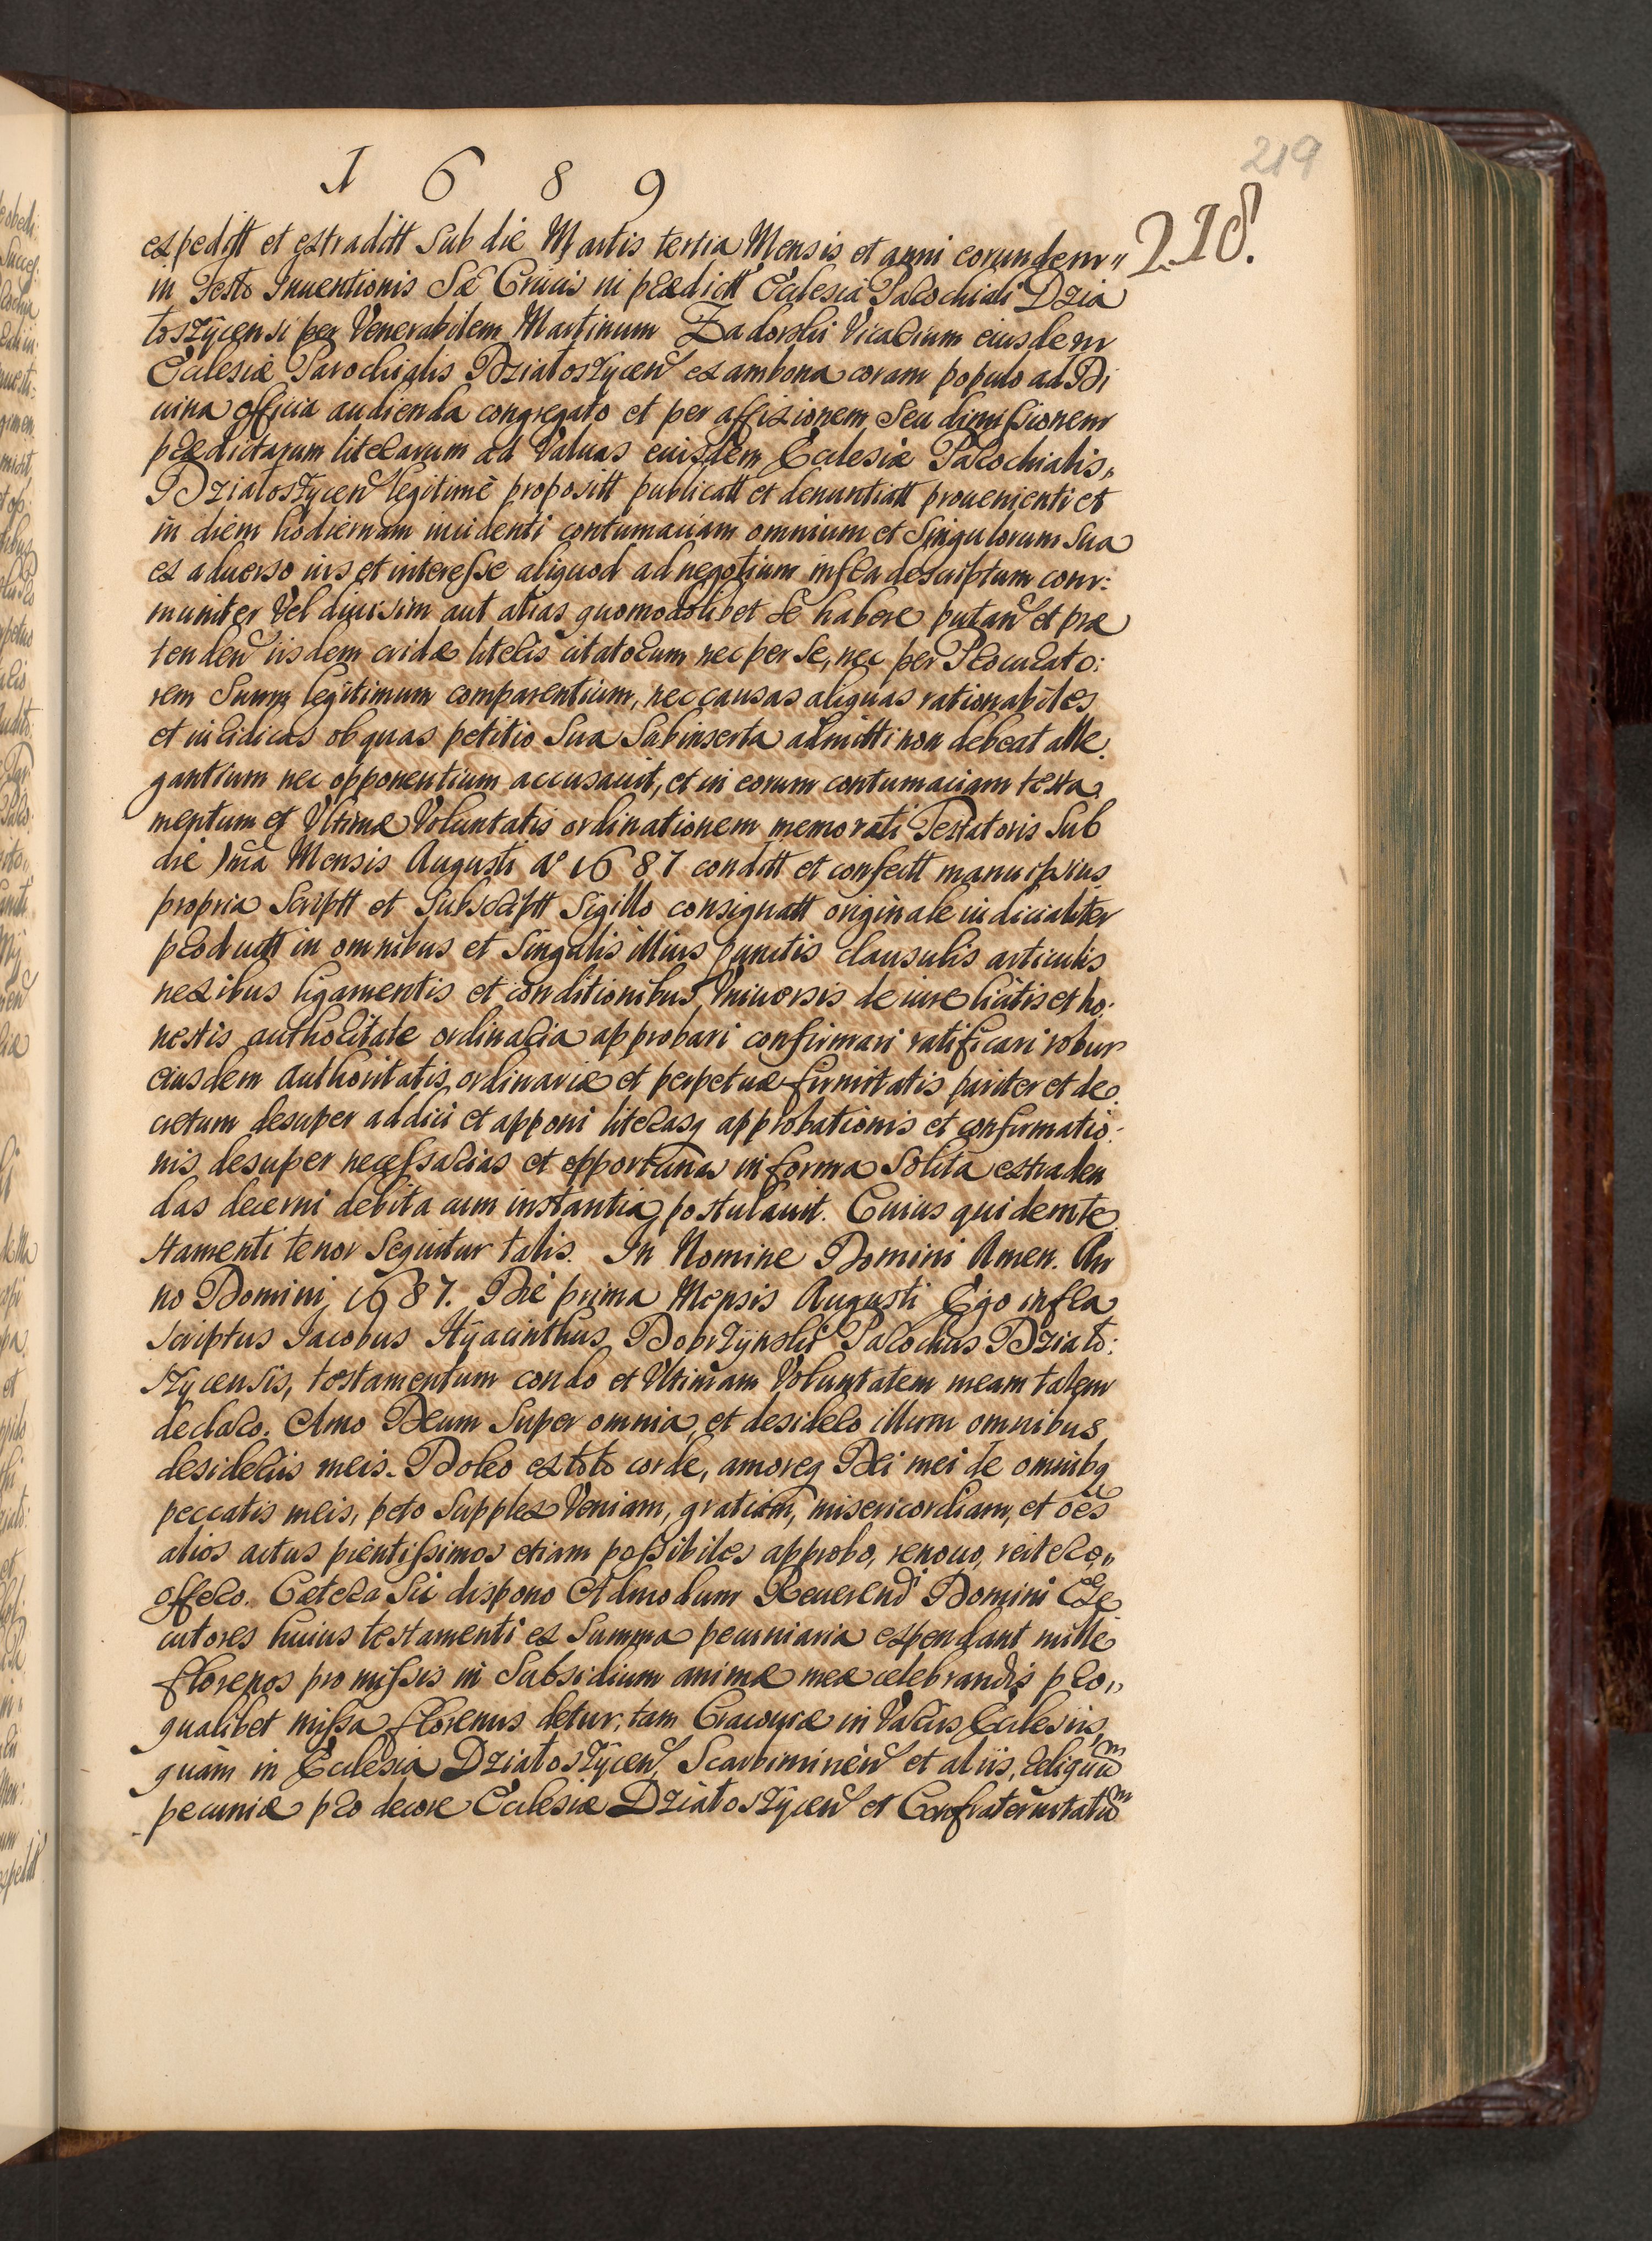 1 6 8 9
219
218.
expeditt et extraditt Sub die Martis tertia Mensis et anni eorundem
in Festo Inuentionis Sæ Crucis in prædictt Ecclesia Parochiali Dzia
toszÿcensi per Venerabilem Martinum Zadorski Vicarium eiusdem
Ecclesiæ Parochialis Dziatoszÿcen ex ambona coram populo ad Di
uina officia audienda congregato et per affixionem Seu dimissionem
prædictarum literarum ad Valuas eiusdem Ecclesiæ Parochialis,
Dziatoszÿcen legitimè propositt publicatt et denuntiatt prouenienti et
in diem hodiernam incidenti contumaciam omnium et Singulorum Sua
ex aduerso ius et interesse aliquod ad negotium infra descriptum com:
muniter Vel diuisim aut alias quomodolibet Se habere putan et præ
tenden iisdem cridæ literis citatorum nec per Se, nec per Procurato:
rem Suum legitimum comparentium, nec causas aliquas rationabiles
et iuridicas ob quas petitio Sua Subinserta admitti non debeat alle
gantium nec opponentium accusauit, et in eorum contumaciam testa
mentum et Vltimæ Voluntatis ordinationem memorati Testatoris Sub
die 1ma Mensis Augusti Ao 1687 conditt et confectt manu ipsius
propria Scriptt et Subscriptt Sigillo consignatt originale iudicialiter
productt in omnibus et Singulis illius punctis clausulis articulis
nexibus ligamentis et conditionibus Vniuersis de iure licitis et ho:
nestis authoritate ordinaria approbari confirmari ratificari robur
eiusdem Authoritatis ordinariæ et perpetuæ firmitatis pariter et de
cretum desuper addici et apponi literasq approbationis et confirmatio:
nis desuper necessarias et opportunas in forma Solita extraden
das decerni debita cum instantia postulauit. Cuius quidem te
stamenti tenor Sequitur talis. In Nomine Domini Amen. An
no Domini 1687. Die prima Mensis Augusti Ego infra
scriptus Iacobus Hÿacinthus Dobrzÿnski Parochus Dziato:
szÿcensis, testamentum condo et Vltimam Voluntatem meam talem
declaro. Amo Deum Super omnia, et desidero illum omnibus
desideriis meis. Doleo ex toto corde, amoreq Dei mei de omnibq
peccatis meis, peto Supplex Veniam, gratiam, misericordiam, et oēs
alios actus pientissimos etiam possibiles approbo, renouo, reitero,
offero. Cætera Sic dispono Admodum Reuerend Domini Exe
cutores huius testamenti ex Summa pecuniaria expendant mille
florenos pro missis in Subsidium animæ meæ celebrandis pro
qualibet missa florenus detur, tam Cracouiæ in Varijs Ecclesiis,
quàm in Ecclesia Dziatoszÿcen, Scarbimirien et aliis, reliquum
pecuniæ pro decore Ecclesiæ Dziatoszÿcen et Confraternitatum